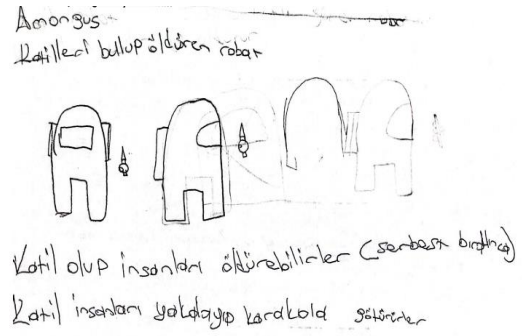 Amongus
Katilleri bulup öldüren robar
Katil olup insanları öldürebilirler (serbest
Katil insanları yakalayıp karakola götürürler